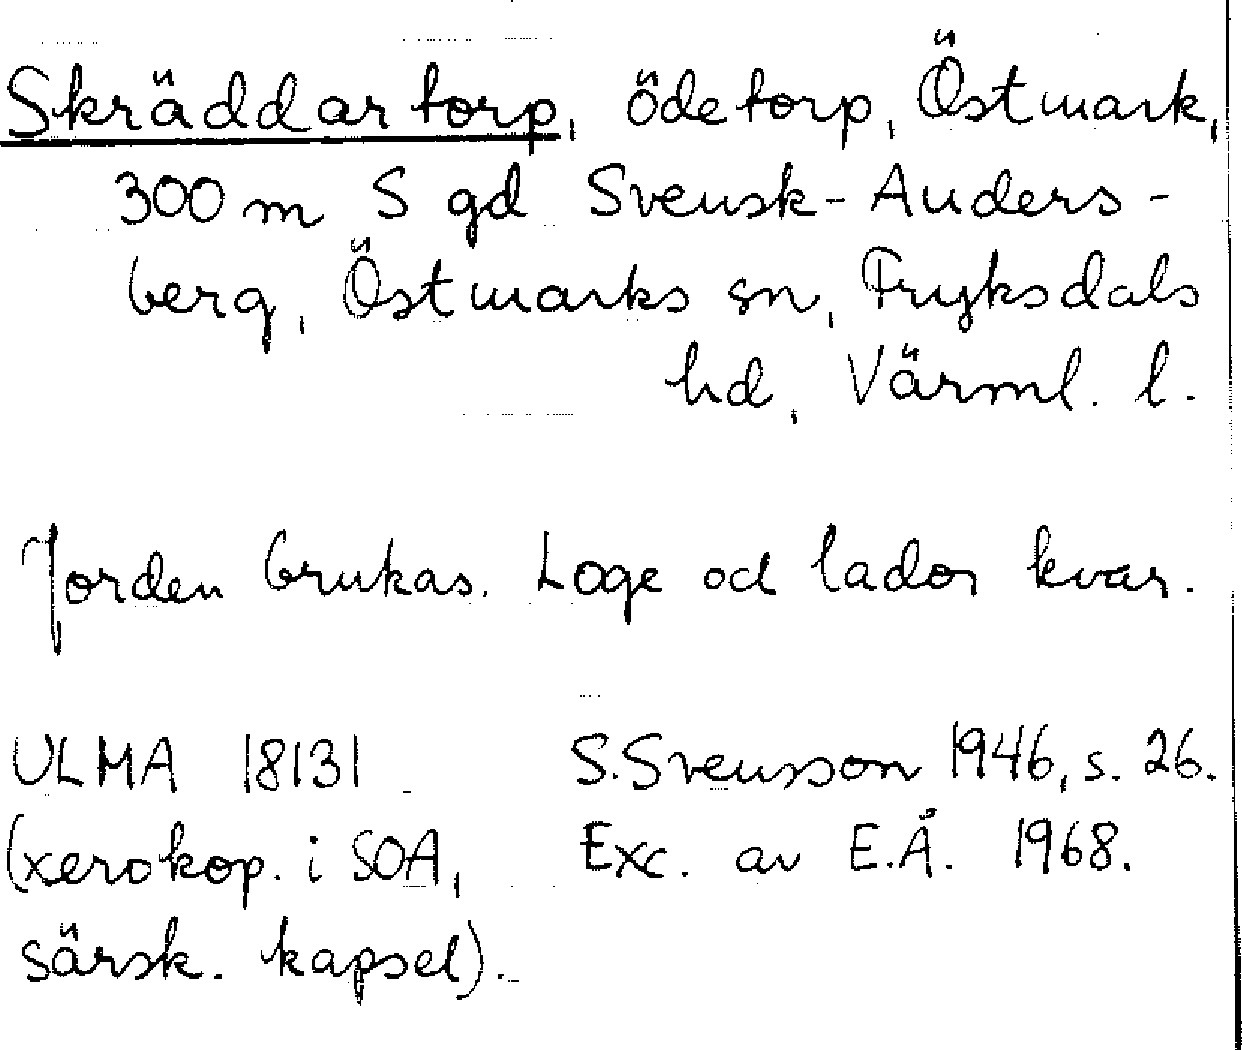 Skräddartorp, ödetorp, Östmark,
300 m S gd Svensk-Anders-
berg, Östmarks sn, Fryksdals
hd, Värml. l.
Jorden brukas. Loge od lador kvar.
ULMA 18131 S. Svensson 1946, s. 26.
(xerokop. i SOA, Exc. av E.Å. 1968.
särsk. kapsel).